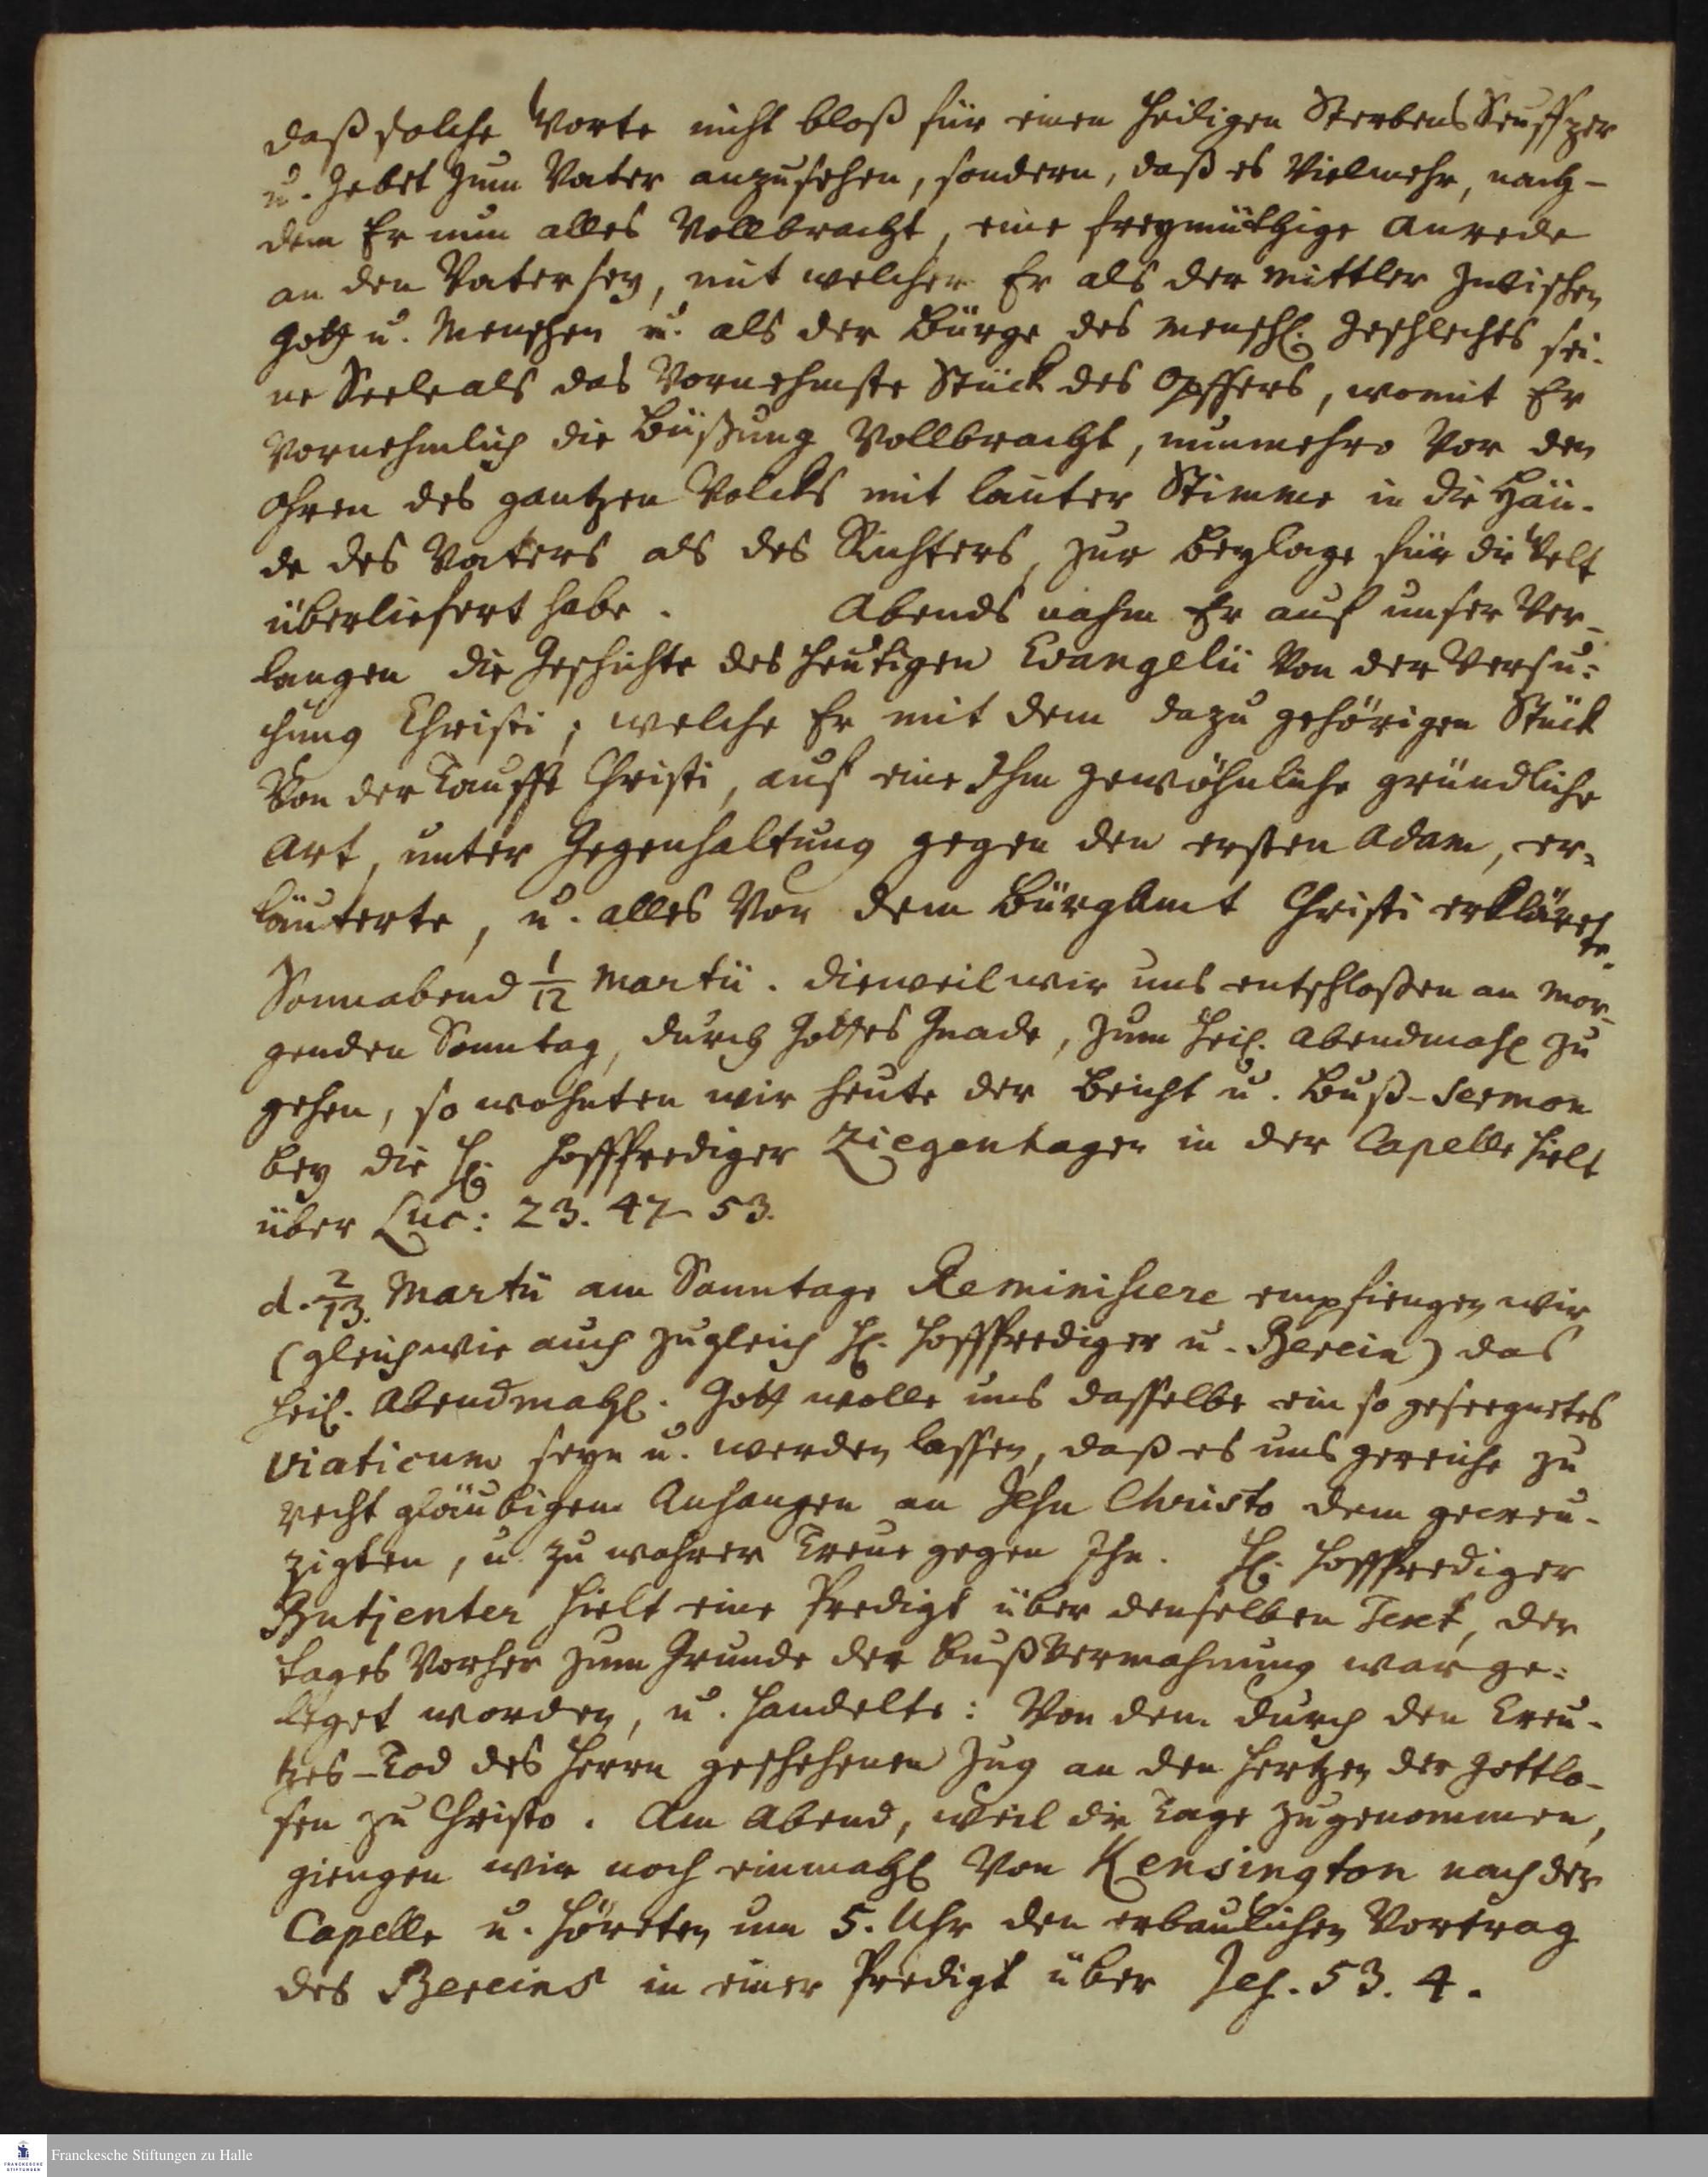 daß solche Worte nicht bloß für einen heiligen Sterbens Seuffzer
u. Gebet zum Vater anzusehen, sondern, daß es Vielmehr, nach-
dem Er nun alles Vollbracht, eine freymüthige Anrede
an den Vater sey, mit welcher Er als der Mittler zwischen
Gott u. Menschen u. als der Bürge des menschl. Geschlechts sei-
ne Seele als das Vornehmste Stück des Opffers, womit Er
Vornehmlich die Büßung Vollbracht, nunmehro Vor den
Ohren des gantzen Volcks mit lauter Stimme in die Hän-
de des Vaters als des Richters, zur Beylage für die Welt
überliefert habe. Abends nahm Er auf unser Ver-
langen die Geschichte des heutigen Evangelii Von der Versu-
chung Christi; welche Er mit dem dazu gehörigen Stück
Von der Tauffe Christi, auf eine Ihm gewöhnliche gründliche
Art, unter Gegenhaltung gegen den ersten Adam, er-
läuterte, u. alles Von dem Bürgamt Christi erklärete.
Sonnabend 1/12 Martii. Dieweil wir uns entschloßen an mor-
genden Sonntag, durch Gottes Gnade, zum heil. Abendmahl zu
gehen, so wohnten wir heute der Beicht u. Buß-Sermon
bey die H. Hoffprediger Ziegenhagen in der Capelle hielt
über Luc: 23. 47-53.
d. 2/13. Martii am Sonntage Reminiscere empfiengen wir
(gleichwie auch zugleich H. Hoffprediger u. Berein) das
heil. Abendmahl. Gott wolle uns dasselbe ein so geseegnetes
Viaticum seyn u. werden lassen, daß es uns gereiche zu
recht gläubigem Anhangen an Jesu Christo dem gecreu-
zigten, u. zu wahrer Treue gegen Ihn. H. Hoffprediger
Butjenter hielt eine Predigt über denselben Text, der
tages Vorher zum Grunde der Bußvermahnung war ge-
leget worden, u. handelte: Von dem durch den Creu-
tzes-Tod des Herrn geschehenen Zug an den Hertzen der Gottlo-
sen zu Christo. Am Abend, weil die Tage zugenommen,
giengen wir noch einmahl Von Kensington nach der
Capelle u. höreten um 5. Uhr den erbaulichen Vortrag
des Bereins in einer Predigt über Jes. 53. 4.
Franckesche Stiftungen zu Halle
FRANCKESCHE
STIFTUNGEN